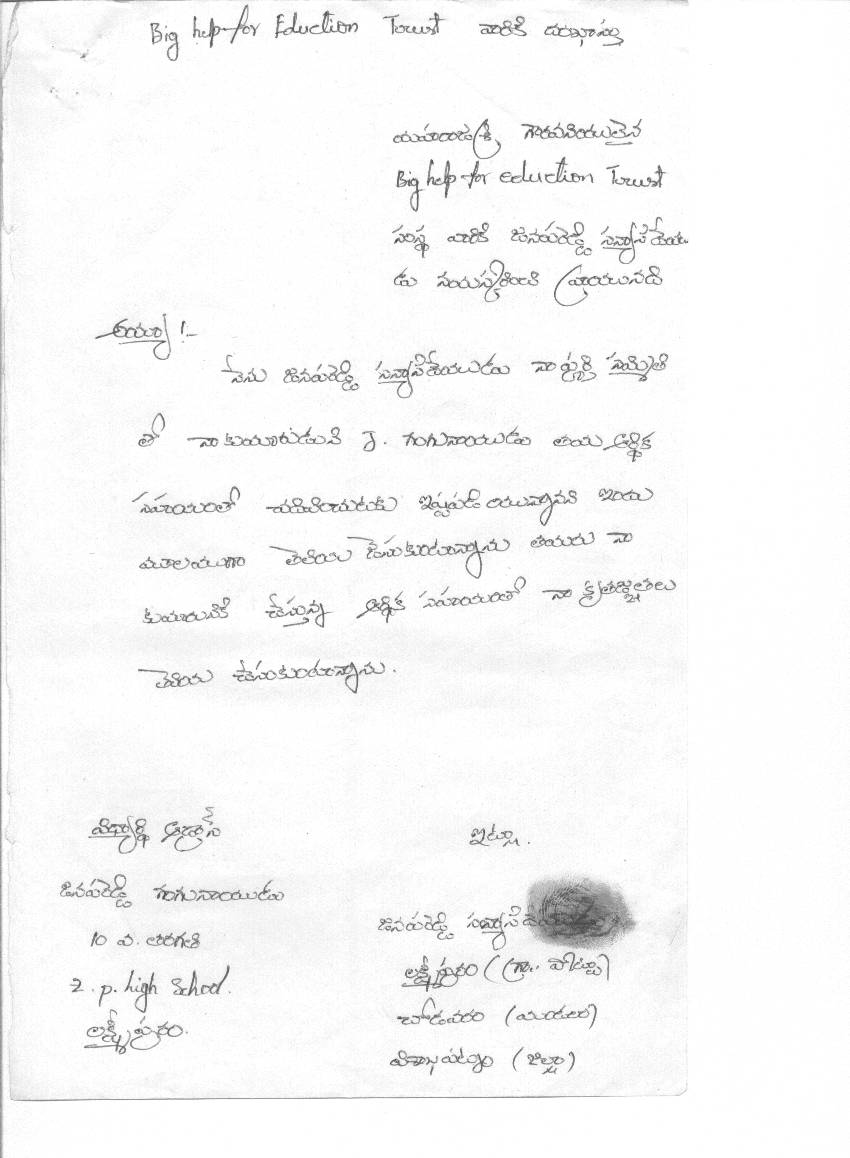 Big help for Eduction Torust వారికి దరఖాస్తు
మహారాజశ్రీ గౌరవనీయులైన
Big help for eduction Torust
సంస్థ వారికి జనపరెడ్డి సన్యాసిదేముడు
డు నమస్కరించి వ్రాయునది
అయ్యా !-
నేను జనపరెడ్డి సన్యాసిదేముడు నా పూర్తి సమ్మతి
తో నా కుమారుడుని J. గంగునాయుడు తమ ఆర్థిక
సహాయంతో చదివించుటకు ఇష్టపడి యున్నానని ఇందు
మూలముగా తెలియ జేసుకుంటున్నాను తమరు నా
కుమారునికి చేస్తున్న ఆర్థిక సహాయంతో నా కృతజ్ఞతలు
తెలియ చేసుకుంటున్నాను.
విద్యార్థి అడ్రాస్
జనపరెడ్డి గంగునాయుడు
10 వ. తరగతి
Z. p. high School.
లక్ష్మీపురం.
ఇట్లు.
జనపరెడ్డి
లక్ష్మీపురం (గ్రా.. పోస్టు)
చోడవరం (మండలం)
విశాఖపట్నం (జిల్లా)